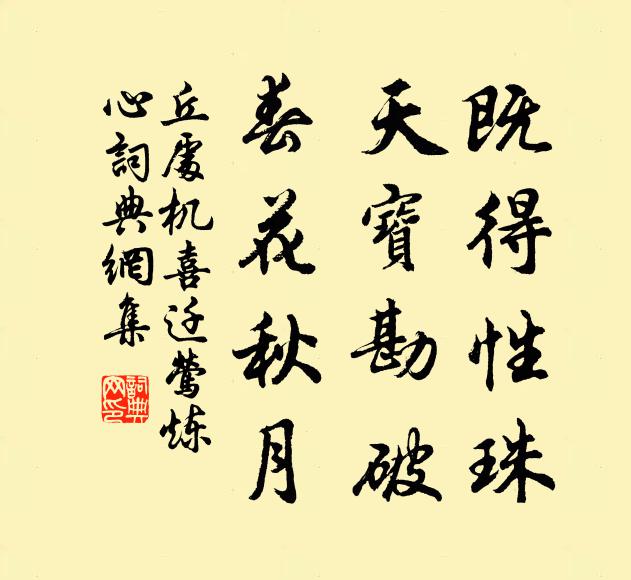 既得性珠
天寶勘破
春花秋月
丘處机喜迁鶯炼
心詞典網集
詞典网印